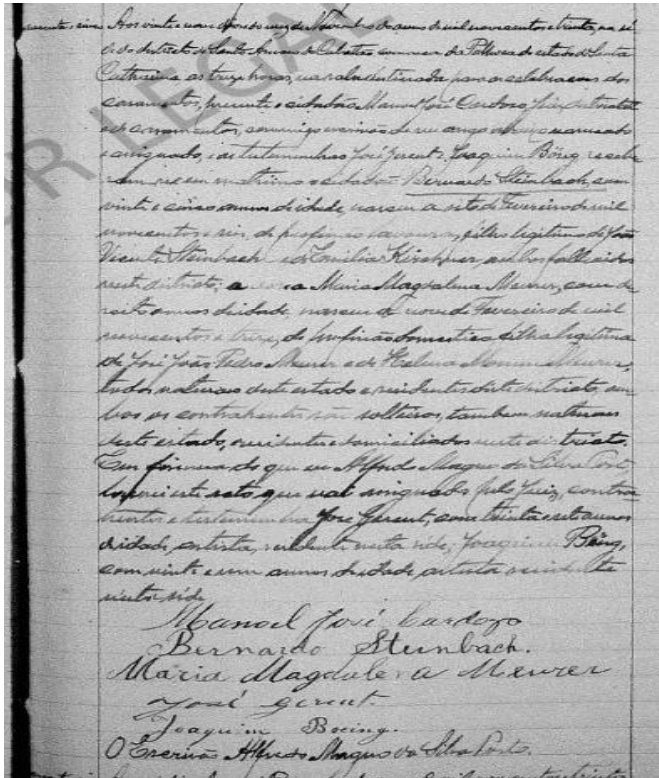 Aos vinte e nove dias do mez de Novembro do anno de mil novecentos e trinta, na sé
de do districto de Santo Amaro do Cubatão comarca da Palhoça do estado de Santa
Catharina as treze horas, na sala destinada para a celebracam dos
casamentos, presente o cidadão Manoel José Cardozo, Juiz
de casamentos, commigo escrivão de seu cargo abaixo nomeado
e assignado, e as testemunhas José Gerent e Joaquim Böing, recebe
ram-se em matrimonio o cidadão Bernardo Steinbach, com
vinte e cinco annos de idade, nasceu a oito de Fevereiro de mil
novecentos e seis, de profissão lavoura, filho legitimo de João
Steinbach e de Emilia Kirchner, ambos fallecidos
neste districto; a Maria Magdalena Meurer, com de
soito annos de idade, nasceu de nove de Fevereiro de mil
novecentos e treze, de profissão domestica filha legitima
de José João Pedro Meurer e de Helena Meurer,
todos naturaes deste estado e residentes deste districto, am
bos os contrahentes são solteiros, tambem naturaes
deste estado, residentes e domiciliados neste districto.
Em firmeza do que eu Alfredo Magno da Silva Porto,
este acto que vai assignado pelo Juiz, contra
hentes e testemunhas José Gerent, com trinta e sete annos
de idade, artista, residente nesta séde, Joaquim Böing,
com vinte e um annos de idade, artista residente
nesta séde
Manoel José Cardozo
Bernardo Steinbach.
Maria Magdalena Meurer
José Gerent.
Joaquim Boeing.
O Escrivão Alfredo Magno da Silva Porto.
OR LEGAL